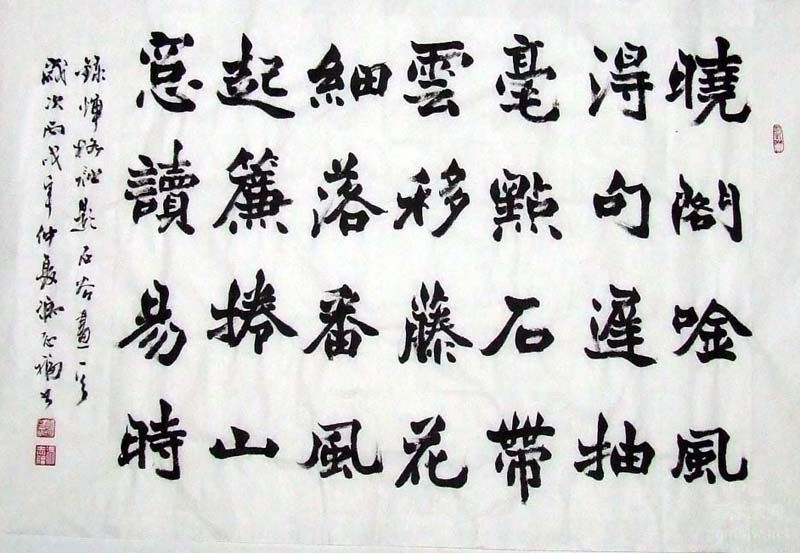 曉閣唫風
得句遲抽
毫點石帶
雲移藤花
細落番風
起簾捲山
窓讀易時
錄惲格題石谷畫一首
歲次丙戌年仲夏張志福書